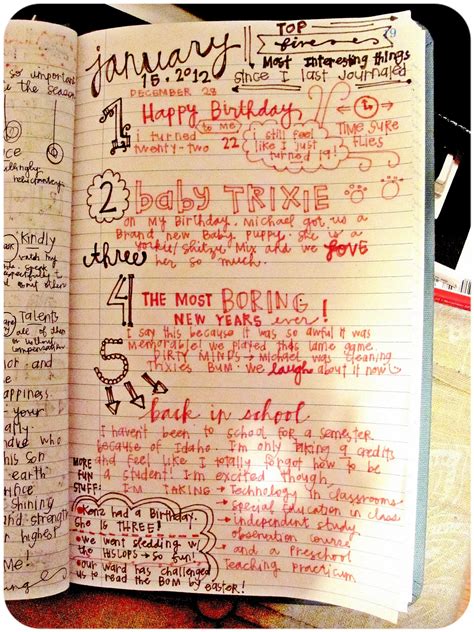 january
15.2012
TOP
fives
79
Most Interesting things
since I last Journaled
DECEMBER 28
1
Happy Birthday
to me
i turned
twenty-two 22
i still feel
like I just
turned 19!
TIME SURE
FLIES
2 baby TRIXIE
on My Birthday. Michael got us a
Brand new Baby puppy. She is a
Yorkie/Shitzu Mix and we LOVE
her so much.
three
4 THE MOST BORING
NEW YEARS ever!
I say this because it was so awful it was
memorable! we played this lame game
DIRTY MINDS → Michael was cleaning
Trixies Bum. we laugh about it now
5
back in school
I haven't been to school for a semester
because of Idaho. I'm only taking 9 credits
and feel like I totally forgot how to be
a student! I'm excited though,
I'm TAKING → Technology in classrooms
• Special Education in class
• independent study
observation course
• and a Preschool
Teaching practicum
MORE
FUN
STUFF!
• Kenz had a Birthday.
She IS THREE!
• we went sledding w/
the HISLOPS → so fun!
• our ward has challenged
us to read the BOM by easter!
so important
the season
Kindly
Talents
all of them
or without
compensation
and
happiness.
your
this son
earth
and strength
me!